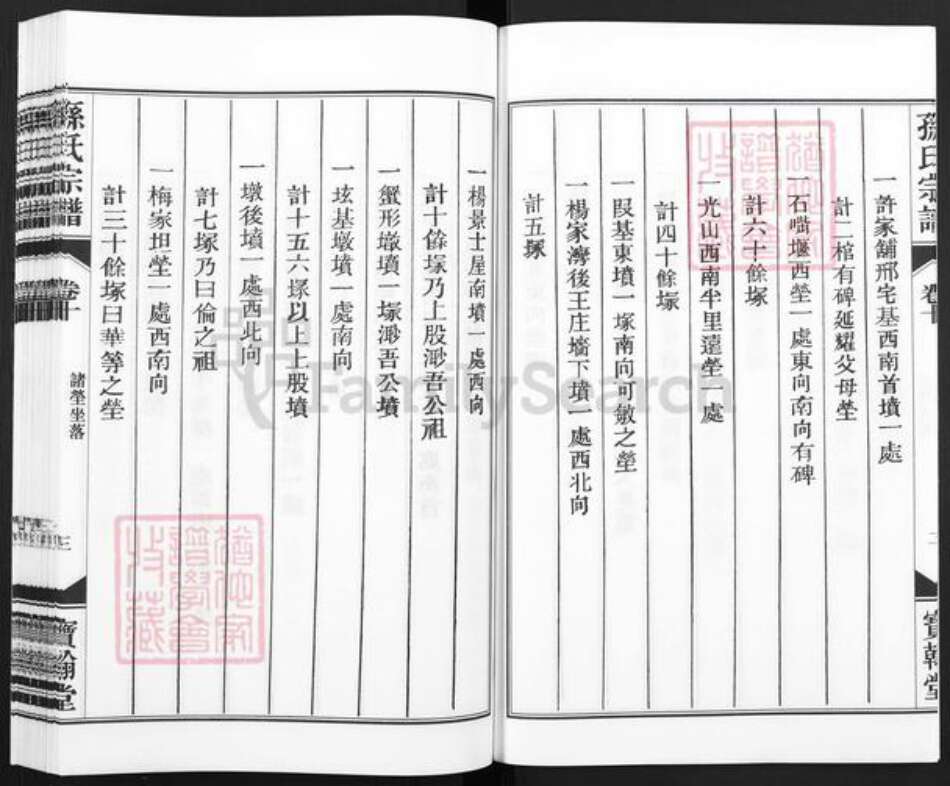 孫氏宗譜
卷十
二
寶翰堂
一許家舖邢宅基西南首墳一處
計二棺有碑延耀父母塋
一石嘴堰西塋一處東向南向有碑
計六十餘塚
一光山西南半里遠塋一處
計四十餘塚
一叚基東墳一塚南向可敏之塋
一楊家灣後王庄墻下墳一處西北向
計五塚
一楊景士屋南墳一處西向
計十餘塚乃上股渺吾公祖
一蟹形墩墳一塚渺吾公墳
一垓基墩墳一處南向
計十五六塚以上上股墳
一墩後墳一處西北向
計七塚乃曰倫之祖
一梅家坦塋一處西南向
計三十餘塚曰華等之塋
孫氏宗譜
卷十
諸塋坐落
三
寶翰堂
猶他家譜學會收藏
猶他家譜學會收藏
FamilySearch